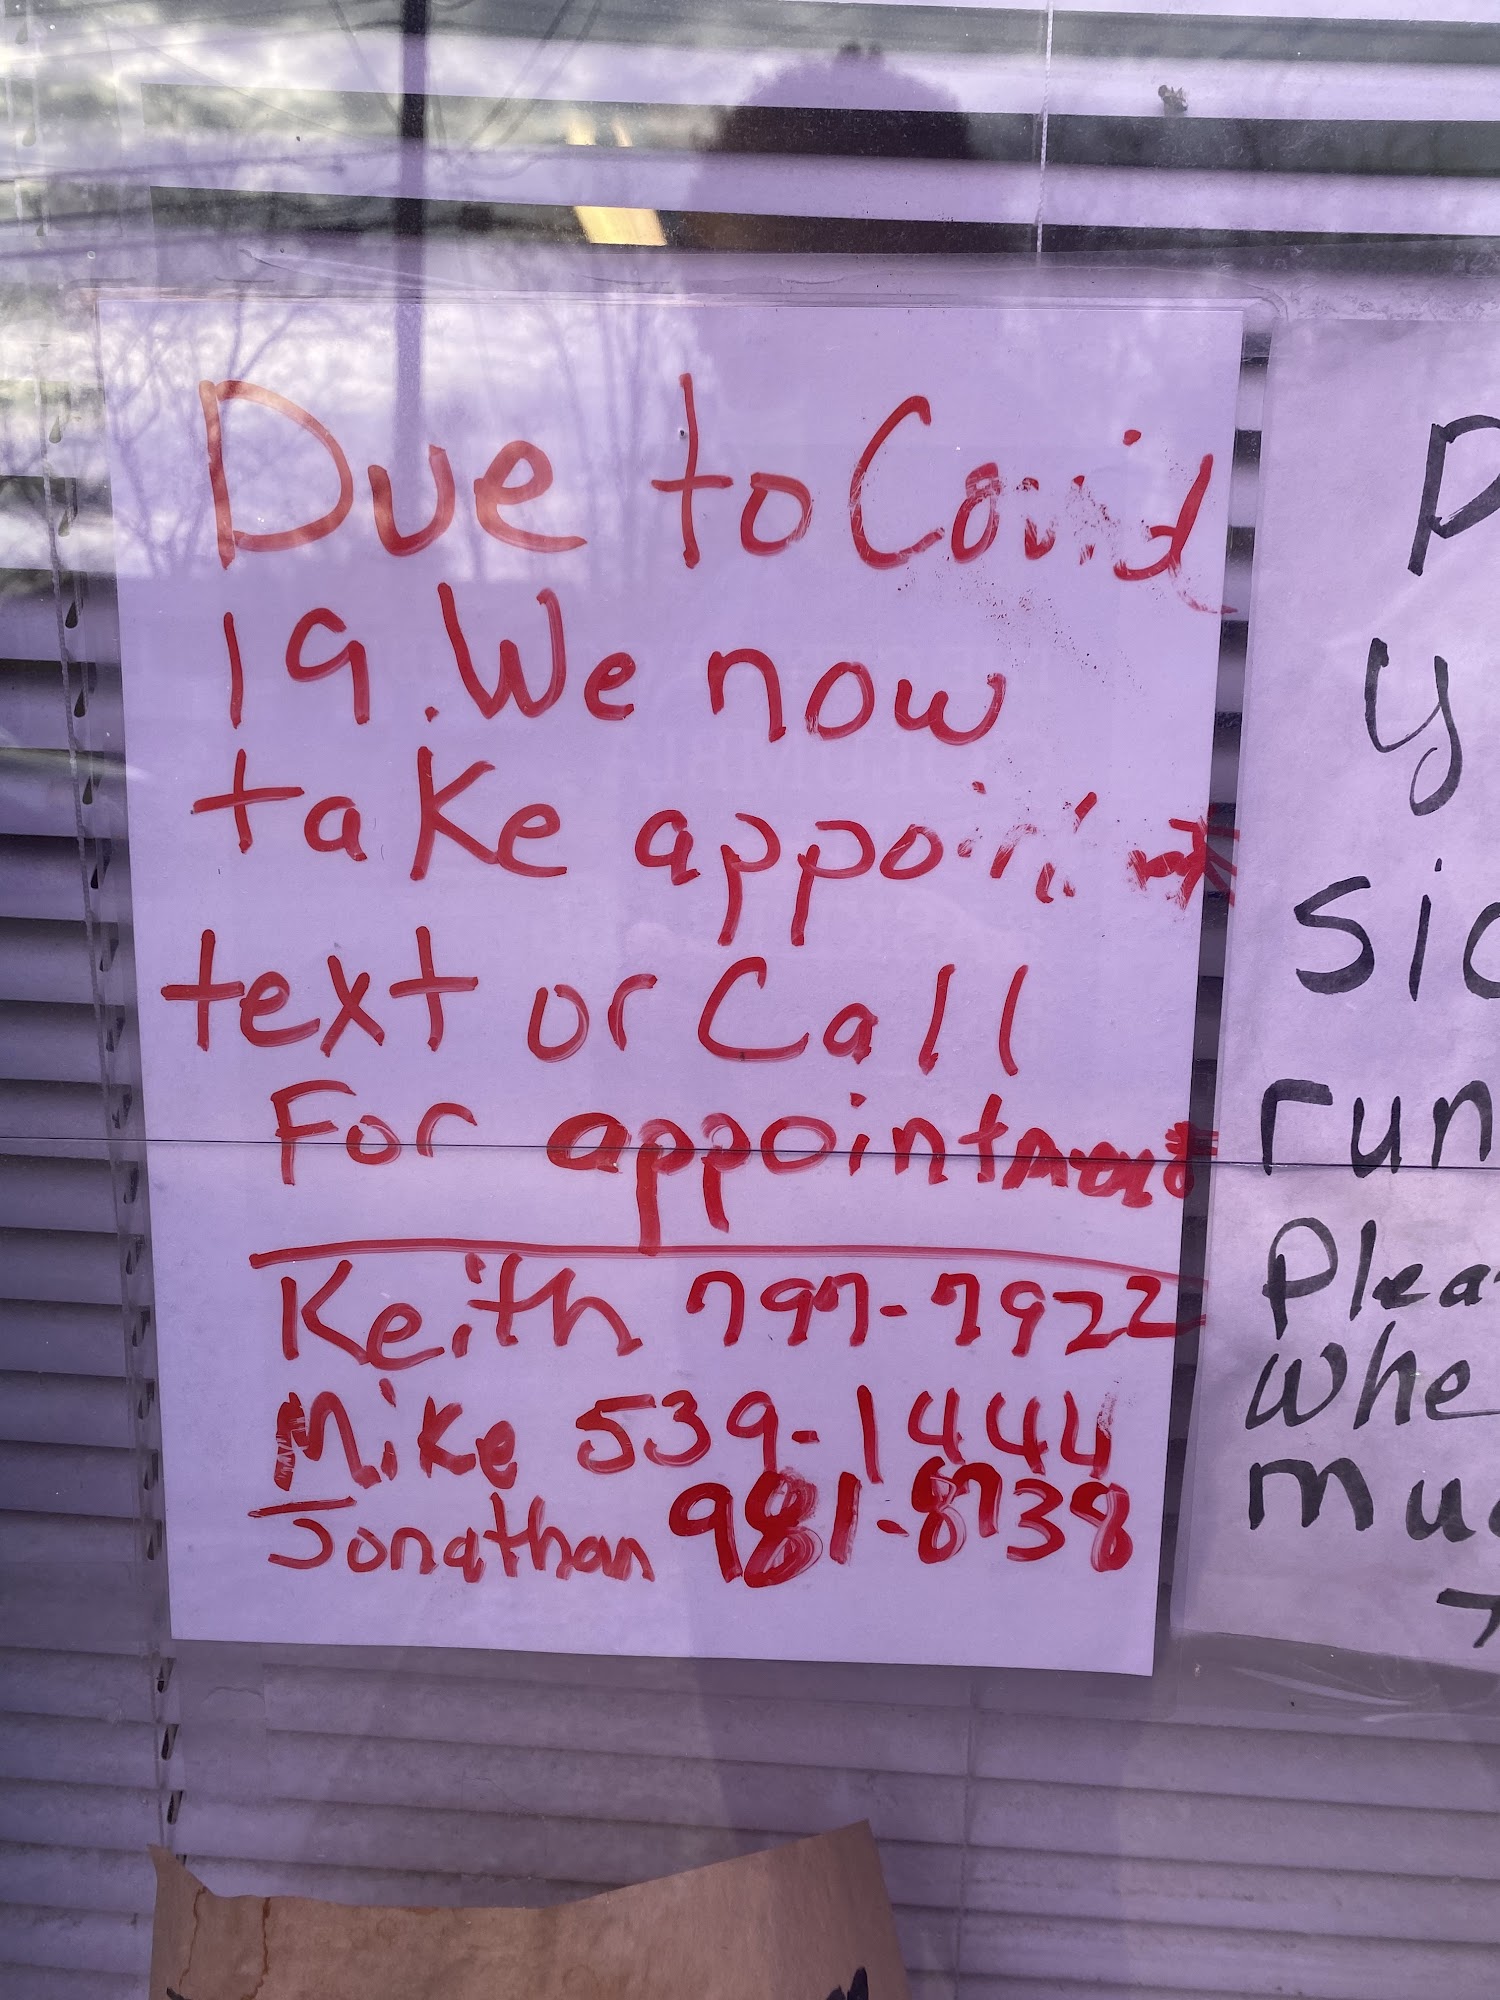 Due to Covid
19. We now
take appointment
text or Call
For appointment
Keith 797-7922
Mike 539-1444
Jonathan 981-8738
P
y
sic
run
Pleas
whe
muc
T